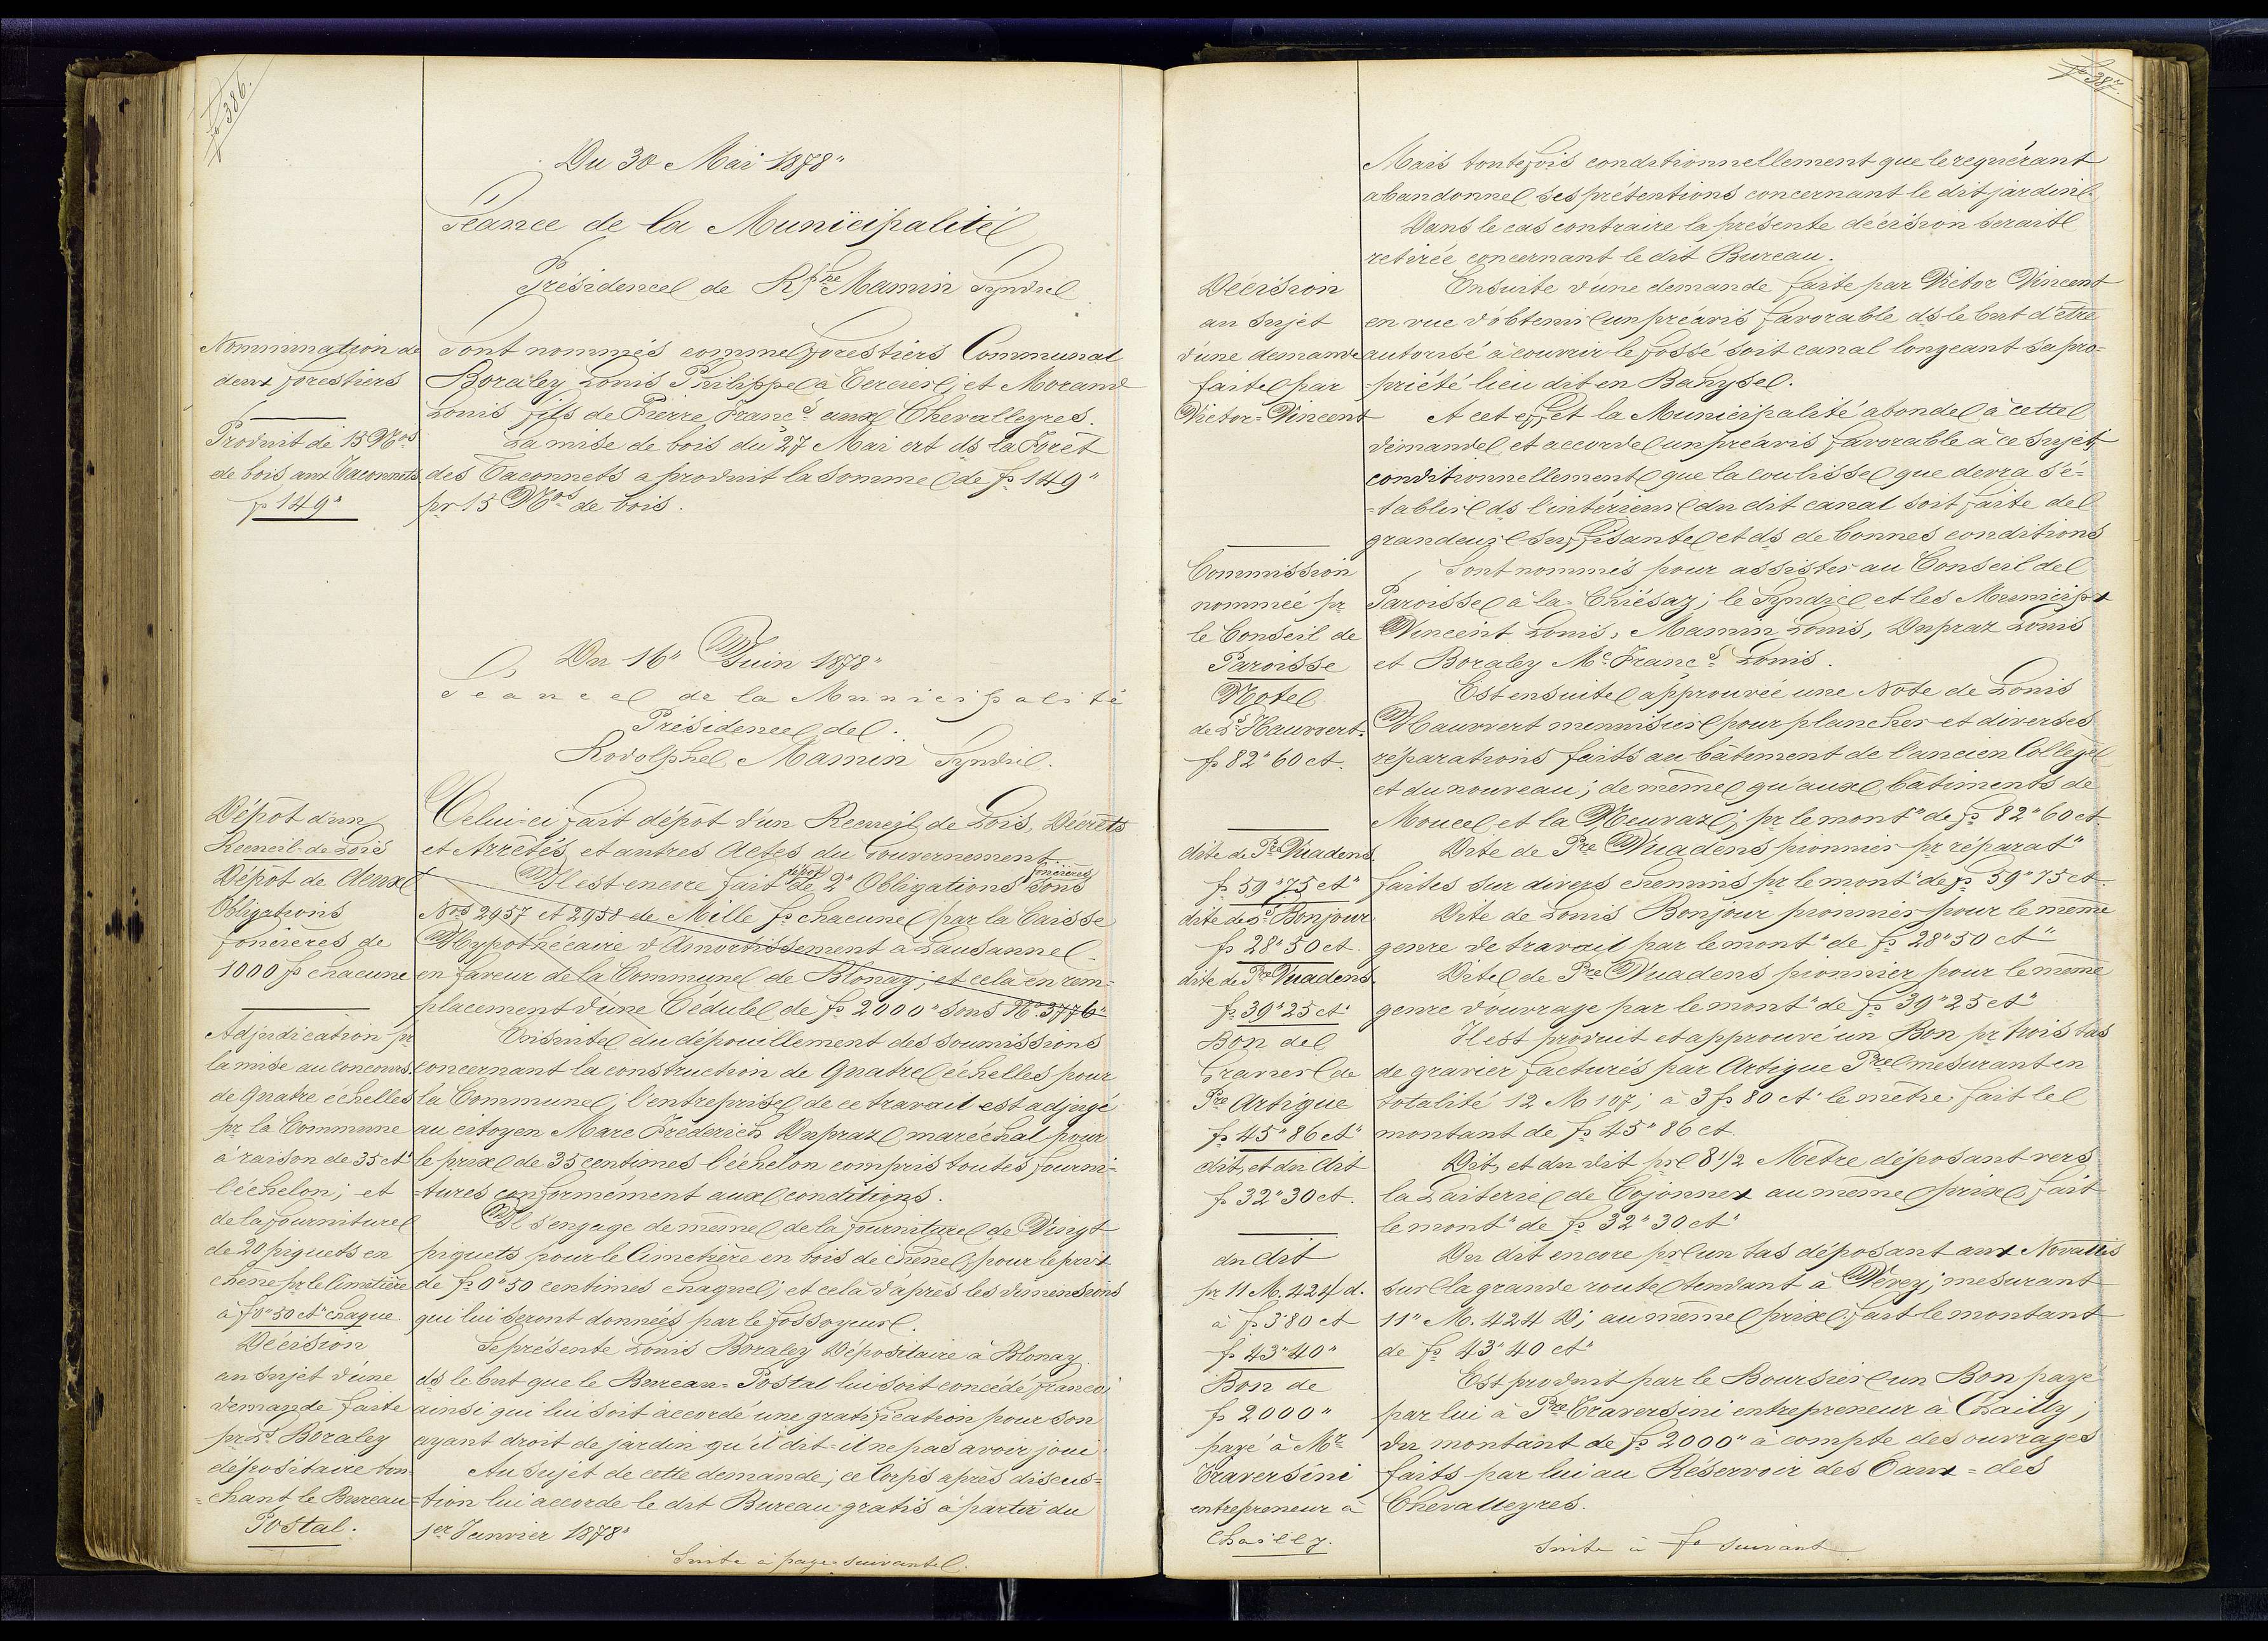 fo 386.
Du 30 Mai 1878"
Séance de la Municipalité
Présidence de Rphe Mamin Syndic
Nommination de
deux forestiers
Sont nommés comme forestiers Communal
Boraley Louis Philippe à Tercier; et Morand
Louis fils de Pierre Francs aux Chevalleyres.
Produit de 15 Nos
de bois aux Taconnets
fs 149"
La mise de bois du 27 Mai crt ds la Forêt
des Taconnets a produit la somme de fs 149"
pr 15 Nos de bois.
Du 16" Juin 1878"
Séance de la Municipalité
Présidence de
Rodolphe Mamin Syndic.
Dépot d'un
Recueil de Lois
Celui-ci fait dépot d'un Recueil de Lois, Décrets
et Arrêtés et autres Actes du Gouvernement.
Dépot de deux
Obligations
foncières de
1000 fs chacune
Il est encore fait dépot de 2" Obligations foncières sous
Nos 2957 et 2958 de Mille fs chacune par la Caisse
Hypothécaire d'Amortissement à Lausanne
en faveur de la Commune de Blonay; et cela en rem-
placement d'une Cédule de fs 2000" sous No 3776"
Adjudication pr
la mise au concours
de quatre échelles
pr la Commune
à raison de 35 ct
l'échelon; et
de la fourniture
de 20 piquets en
chêne pr le Cimetière
à f 0"50 ct chaque
Ensuite du dépouillement des soumissions
concernant la construction de quatre échelles pour
la Commune; l'entreprise de ce travail est adjugé
au citoyen Marc Fréderich Dupraz maréchal pour
le prix de 35 centimes l'échelon compris toutes fourni-
-tures conformément aux conditions.
Il s'engage de même de la fourniture de Vingt
piquets pour le Cimetière en bois de chêne; pour le prix
de fs 0"50 centimes chaque; et cela d'après les dimensions
qui lui seront données par le fossoyeur.
Décision
au sujet d'une
demande faite
pr Ls Boraley
dépositaire tou-
-chant le Bureau
Postal.
Se présente Louis Boraley Dépositaire à Blonay
ds le but que le Bureau-Postal lui soit concédé franco;
ainsi qui lui soit accordé une gratification pour son
ayant droit de jardin qu'il dit-il ne pas avoir joui
Au sujet de cette demande; ce Corps après discus-
-tion lui accorde le dit Bureau gratis à partir du
1er Janvier 1878"
Suite à page suivante.
fo 387.
Mais toutefois conditionnellement que le requérant
abandonne ses prétentions concernant le dit jardin.
Dans le cas contraire la présente décision serait
retirée concernant le dit Bureau.
Décision
au sujet
d'une demande
faite par
Victor-Vincent
Ensuite d'une demande faite par Victor Vincent
en vue d'obtenir un préavis favorable ds le but d'être
autorisé à couvrir le fossé soit canal longeant sa pro-
-priété lieu dit en Banyse.
A cet effet la Municipalité abonde à cette
demande et accorde un préavis favorable à ce sujet
conditionnellement que la coulisse que devra s'é-
-tablir ds l'intérieur du dit canal soit faite de
grandeur suffisante et ds de bonnes conditions
Commission
nommée pr
le Conseil de
Paroisse
Sont nommés pour assister au Conseil de
Paroisse à la Chiésaz; le Syndic et les Municipx
Vincent Louis, Mamin Louis, Dupraz Louis
et Boraley Mc Francs Louis.
Notel
de Ls Hauvert.
fs 82"60 ct.
Est ensuite approuvée une Note de Louis
Hauvert menuisier pour plancher et diverses
réparations faits au bâtement de l'ancien Collège
et du nouveau; de même qu'aux bâtiments de
Mouce et la Neuvaz; pr le mont" de fs 82"60 ct
dite de Pre Vuadens
fs 59"75 ct"
Dite de Pre Vuadens pionnier pr réparat"
faites sur divers chemins pr le mont" de fs 59"75 ct.
dite de Ls Bonjour
fs 28"50 ct.
Dite de Louis Bonjour pionnier pour le même
genre de travail par le mont" de fs 28"50 ct"
dite de Pre Vuadens.
fs 39"25 ct
Dite de Pre Vuadens pionnier pour le même
genre d'ouvrage par le mont" de fs 39"25 ct"
Bon de
Gravier de
Pre Artigue
fs 45"86 ct"
Il est produit et approuvé un Bon pr trois tas
de gravier facturés par Artigue Pre mesurant en
totalité 12 M 107; à 3 fs 80 ct le mètre fait le
montant de fs 45"86 ct.
dit, et du dit
fs 32"30 ct.
Dit, et du dit pr 8 1/2 Mètre déposant vers
la Laiterie de Cojonnex au même prix, fait
le mont" de fs 32"30 ct"
du dit
pr 11 M. 424 d.
à fs 3"80 ct
fs 43"40"
Du dit encore pr un tas déposant aux Novallis
sur la grande route tendant à Vevey; mesurant
11" M. 424 D; au même prix fait le montant
de fs 43"40 ct"
Bon de
fs 2000"
payé à Mr
Traversini
entrepreneur à
Chailly.
Est produit par le Boursier un Bon payé
par lui à Pre Traversini entrepreneur à Chailly;
du montant de fs 2000" à compte des ouvrages
faits par lui au Réservoir des Eaux-des
Chevalleyres.
Suite à fo suivant